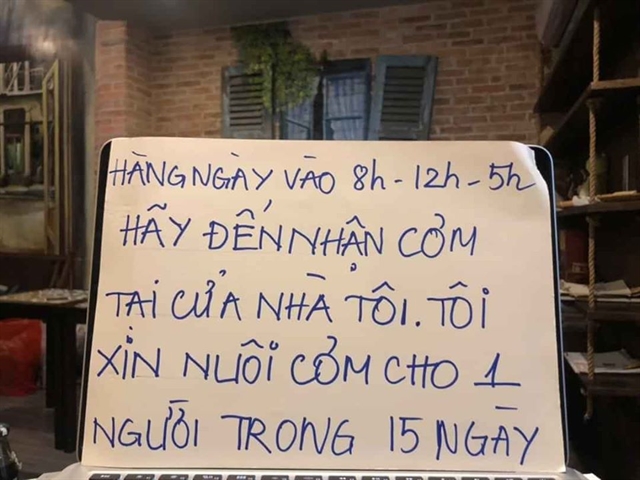 HÀNG NGÀY VÀO 8h - 12h - 5h
HÃY ĐẾN NHẬN CƠM
TẠI CỬA NHÀ TÔI. TÔI
XIN NUÔI CƠM CHO 1
NGƯỜI TRONG 15 NGÀY